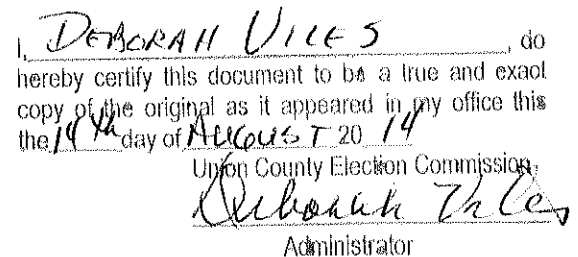 I, DEBORAH VILES, do
hereby certify this document to be a true and exact
copy of the original as it appeared in my office this
the 14th day of AUGUST 20 14
Union County Election Commission
Deborah Viles
Administrator